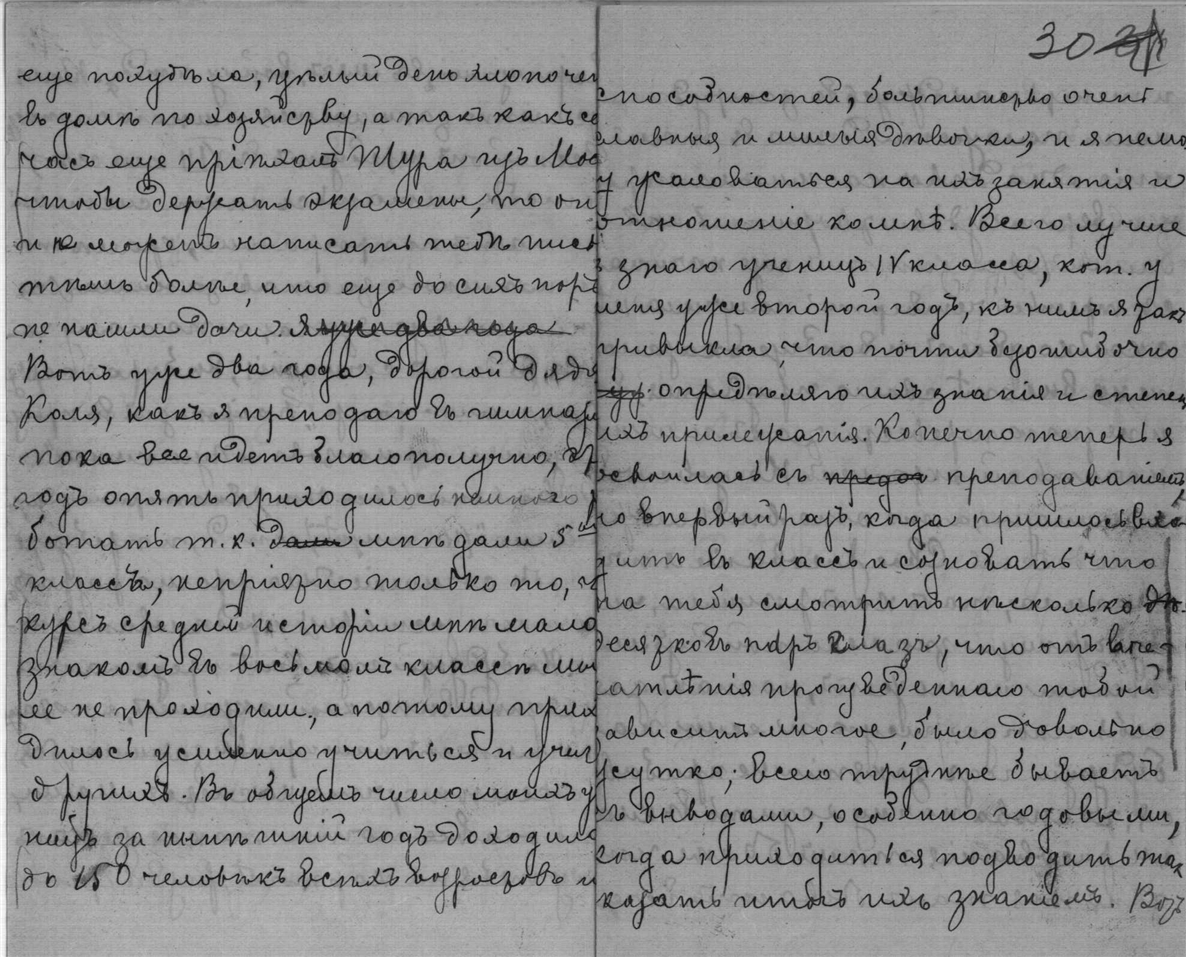 еще похудѣла, цѣлый день хлопочет
въ домѣ по хозяйству, а такъ какъ се
часъ еще пріѣхалъ Шура изъ Мос
чтобы держать экзамены, то он
и не можетъ написать тебѣ пись
тѣмъ болѣе, что еще до сихъ поръ
не нашли дачи. Я уже два года
Вотъ уже два года, дорогой дядя
Коля, какъ я преподаю въ гимназі
пока все идетъ благополучно,
годъ опять приходилось немного
ботать т. к. дали мнѣ дали 5ый
классъ, непріязно только то, ч
курсъ средней исторіи мнѣ мало
знакомъ въ восьмомъ классѣ мы
ее не проходили, а потому прихо
дилось усиленно учиться и учит
другихъ. Въ общемъ число моихъ у
ницъ за нынѣшній годъ доходило
до 150 человѣкъ всѣхъ возрастовъ и
30
способностей, большинство очень
славныя и милыя дѣвочки, и я немо
у жаловаться на ихъ занятія и
отношеніе ко мнѣ. Всего лучше
я знаю ученицъ IV класса, кот. у
меня уже второй годъ, къ нимъ я такъ
привыкла, что почти безошибочно
опредѣляю ихъ знанія и степень
ихъ прилежанія. Конечно теперь я
освоилась съ предов преподаваніемъ,
но впервый разъ, когда пришлось вхо-
дить въ классъ и сознавать что
на тебя смотритъ нѣсколько де-
десятковъ паръ глазъ, что отъ впеч
атлѣнія произведеннаго тобой
зависитъ многое, было довольно
жутко; всего труднѣе бываетъ
съ выводами, особенно годовыми,
когда приходиться подводить так
казать итогъ ихъ знаніемъ. Вотъ